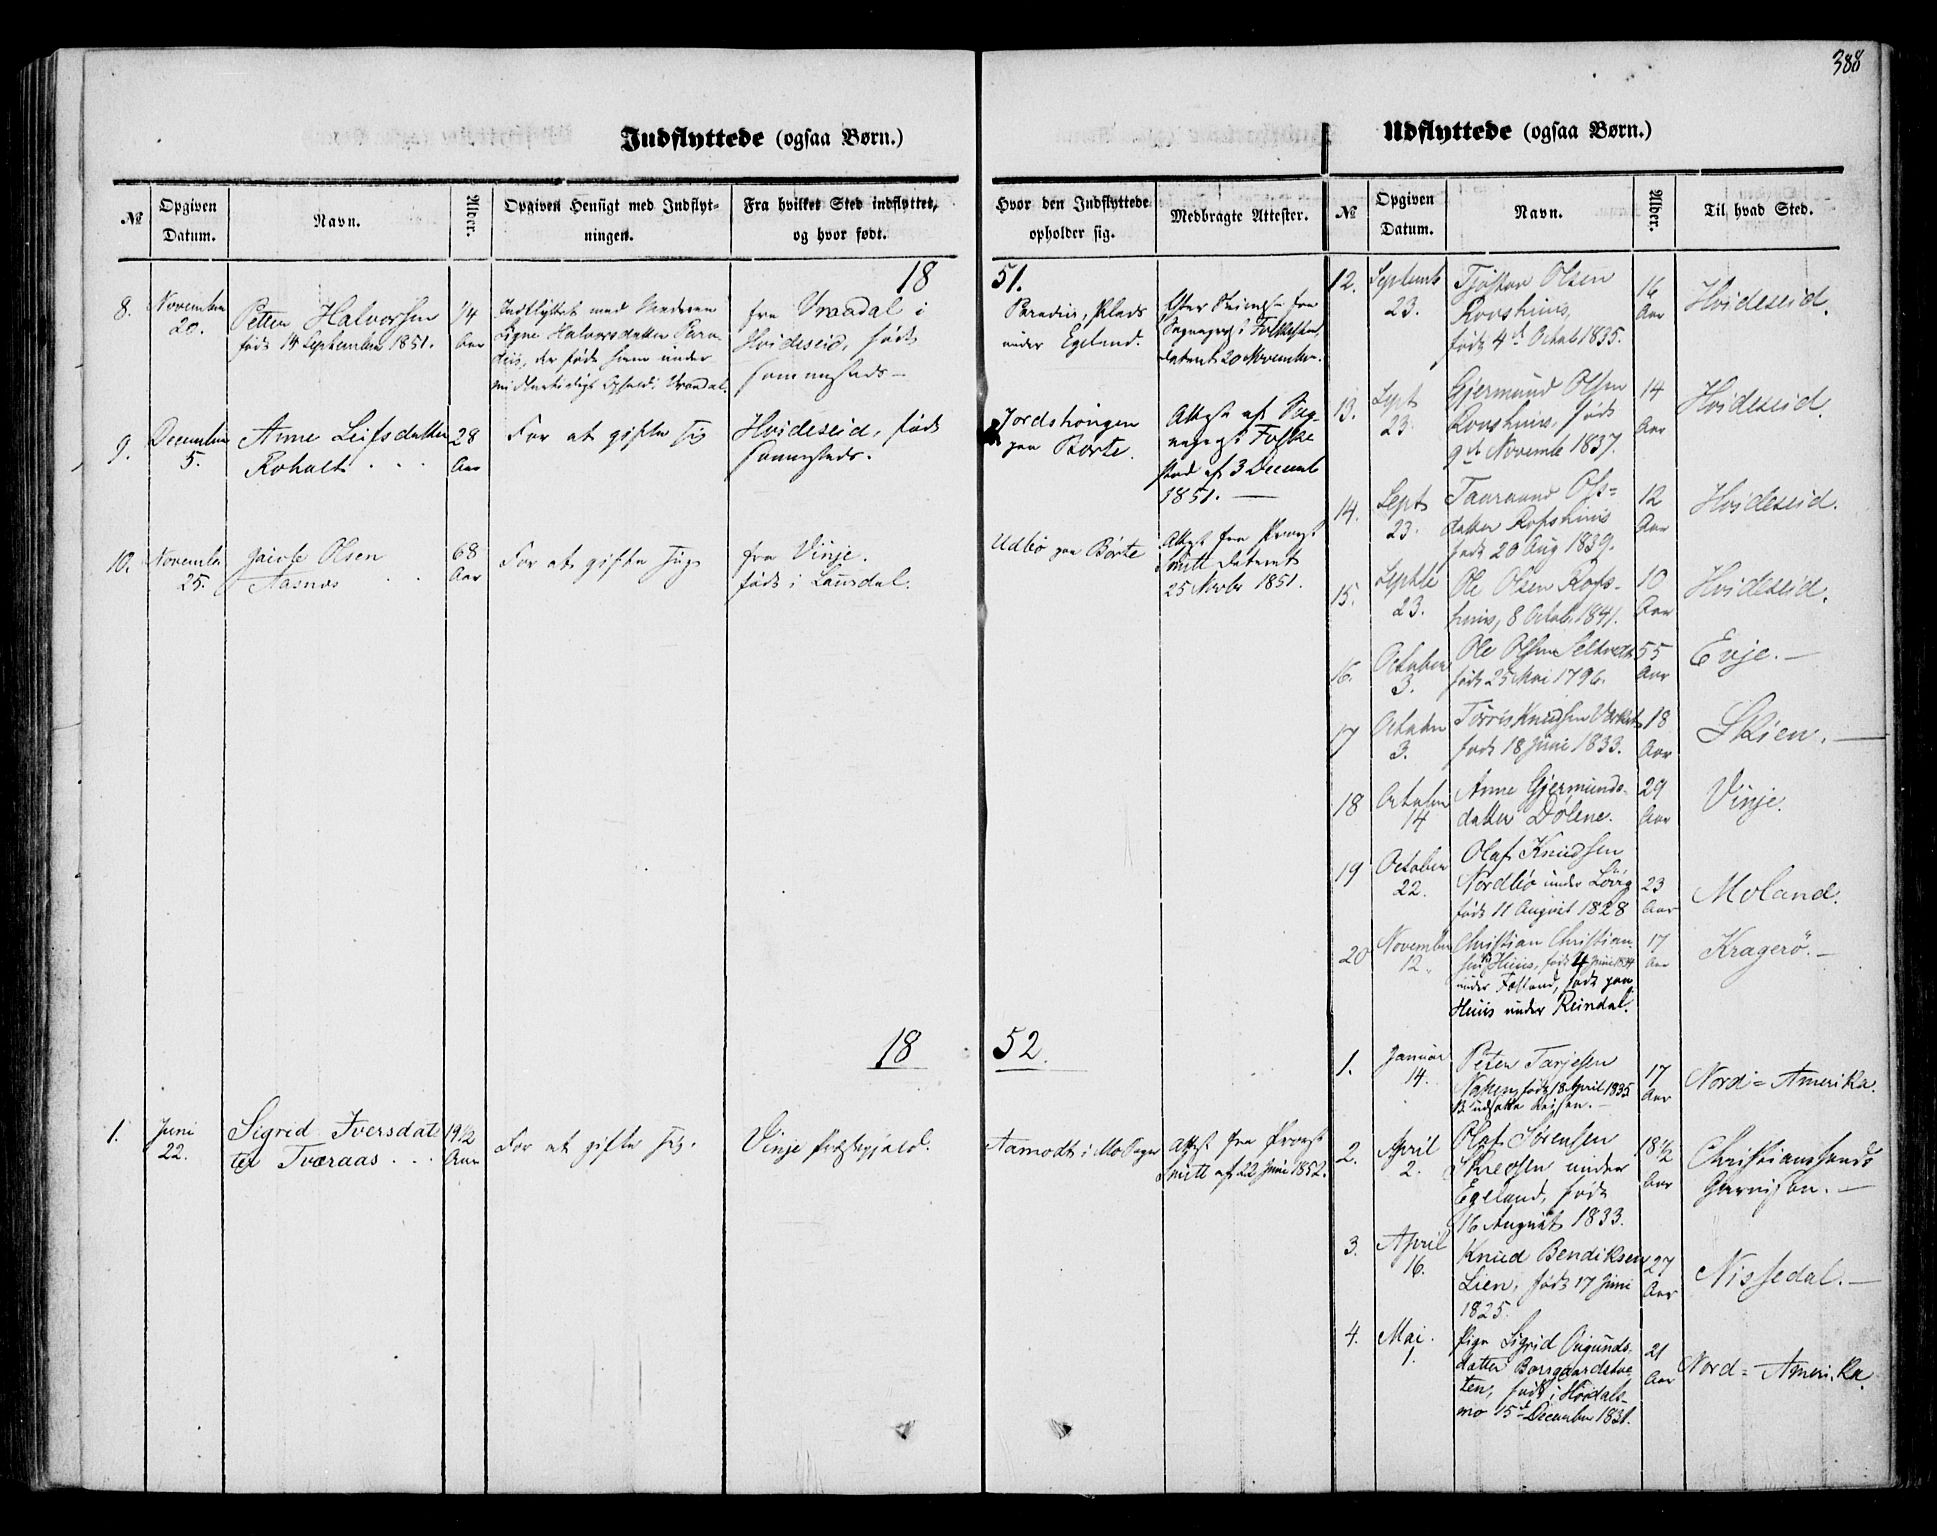 388
Indflyttede (ogsaa Børn.)
Udflyttede (ogsaa Børn.)
№
Opgiven
Datum.
Navn.
Alder.
Opgiven Hensigt med Indflyt-
ningen.
Fra hvilket Sted indflyttet,
og hvor født.
Hvor den Indflyttede
opholder sig.
Medbragte Attester.
№
Opgiven
Datum.
Navn.
Alder.
Til hvad Sted.
1851.
8.
November
20.
Petter Halvorsen
født 14 September 1851.
1/4
Aar
Indflyttet med Moderen
Signe Halvorsdatter Para-
diis, der fødte ham under
midlertidigt Ophold i Vraadal.
fra Vraadal i
Hvideseid, født
sammesteds –
Paradiis, Plads
under Egeland.
Sognepr. i Folkestad,
dateret 20 November.
9.
December
5.
Anne Leifsdatter
Roholt . . .
28
Aar
For at gifte sig
Hvideseid, født
sammesteds.
paa Børte.
Attest af Sog-
nepr. i Folke
stad af 3 Decemb
1851. —
10.
November
25.
Olsen
Aasnes . .
68
Aar
For at gifte sig
fra Vinje.
født i Laurdal.
Udbø paa Børte
Attest fra Provst
Smitt dateret
25 Novbr 1851.
1852.
1.
Juni
22.
Sigrid Iversdat
ter Tveraas . . .
19 1/2
Aar
For at gifte sig.
Vinje Præstegjæld.
Aamodt i Mo Sogn
Attest fra Provst
Smitt af 22 Juni 1852.
12.
Septemb
23.
Tjøstov Olsen
Rovshuus,
født 4de Octob 1835.
16
Aar
Hvideseid.
13.
Sept
23.
Gjermund Olsen
Rovshuus, født
9de Novemb 1837.
14
Aar
Hvideseid.
14.
Sept
23.
Taaraand Ols-
datter Rofshuus
født 20 Aug 1839.
12
Aar
Hvideseid.
15.
Septbr
23.
Ole Olsen Rofs-
huus, 8 Octob. 1841.
10
Aar
Hvideseid.
16.
October
3.
Ole Olsen Seltveit
født 25 Mai 1796.
55
Aar
Evje. —
17
October
3.
Torris Knudsen
født 18 Juni 1833.
18
Aar
Skien. —
18
October
14
Anne Gjermunds-
datter Dølene.
29
Aar
Vinje.
19
October
22.
Olaf Knudsen
Nordbø under
født 11 August 1828
23
Aar
Moland.
20
November
12.
Christian Christian-
sen Huus, født 4 Juni 1834
under født paa
Huus under Reindal.
17
Aar
Kragerø. —
1.
Januar
14.
Peter Tarjesen
Naper, født 18 April 1835
udsatte Reisen. —
17
Aar
Nord = Amerika.
2.
April
2.
Olaf Sørensen
under
Egeland, født
16 August 1833.
18 1/2
Aar
Christianssands
Garnison. —
3.
April
16.
Knud Bendiksen
Lien, født 17 Juni
1825.
27
Aar
Nissedal. —
4.
Mai.
1.
Pige Sigrid Augunds-
datter Borgaardstve-
ten, født i Høidals-
mo 15de December 1831.
21
Aar
Nord = Amerika.